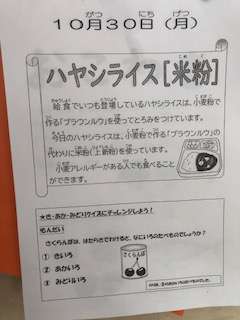 がつ にち げつ
10月30日（月）
こめ こ
ハヤシライス［米粉］
きゅうしょく とうじょう こむぎこ
給食でいつも登場しているハヤシライスは、小麦粉で
作る「ブラウンルウ」を使ってとろみをつけています。
今日のハヤシライスは、小麦粉で作る「ブラウンルウ」の
代わりに米粉（上新粉）を使っています。
小麦アレルギーがある人でも食べること
ができます。
★き・あか・みどりクイズにチャレンジしよう！
もんだい
さくらんぼは、はたらきでわけると、なにいろのたべものでしょうか？
① きいろ
② あかいろ
③ みどりいろ
さくらんぼ